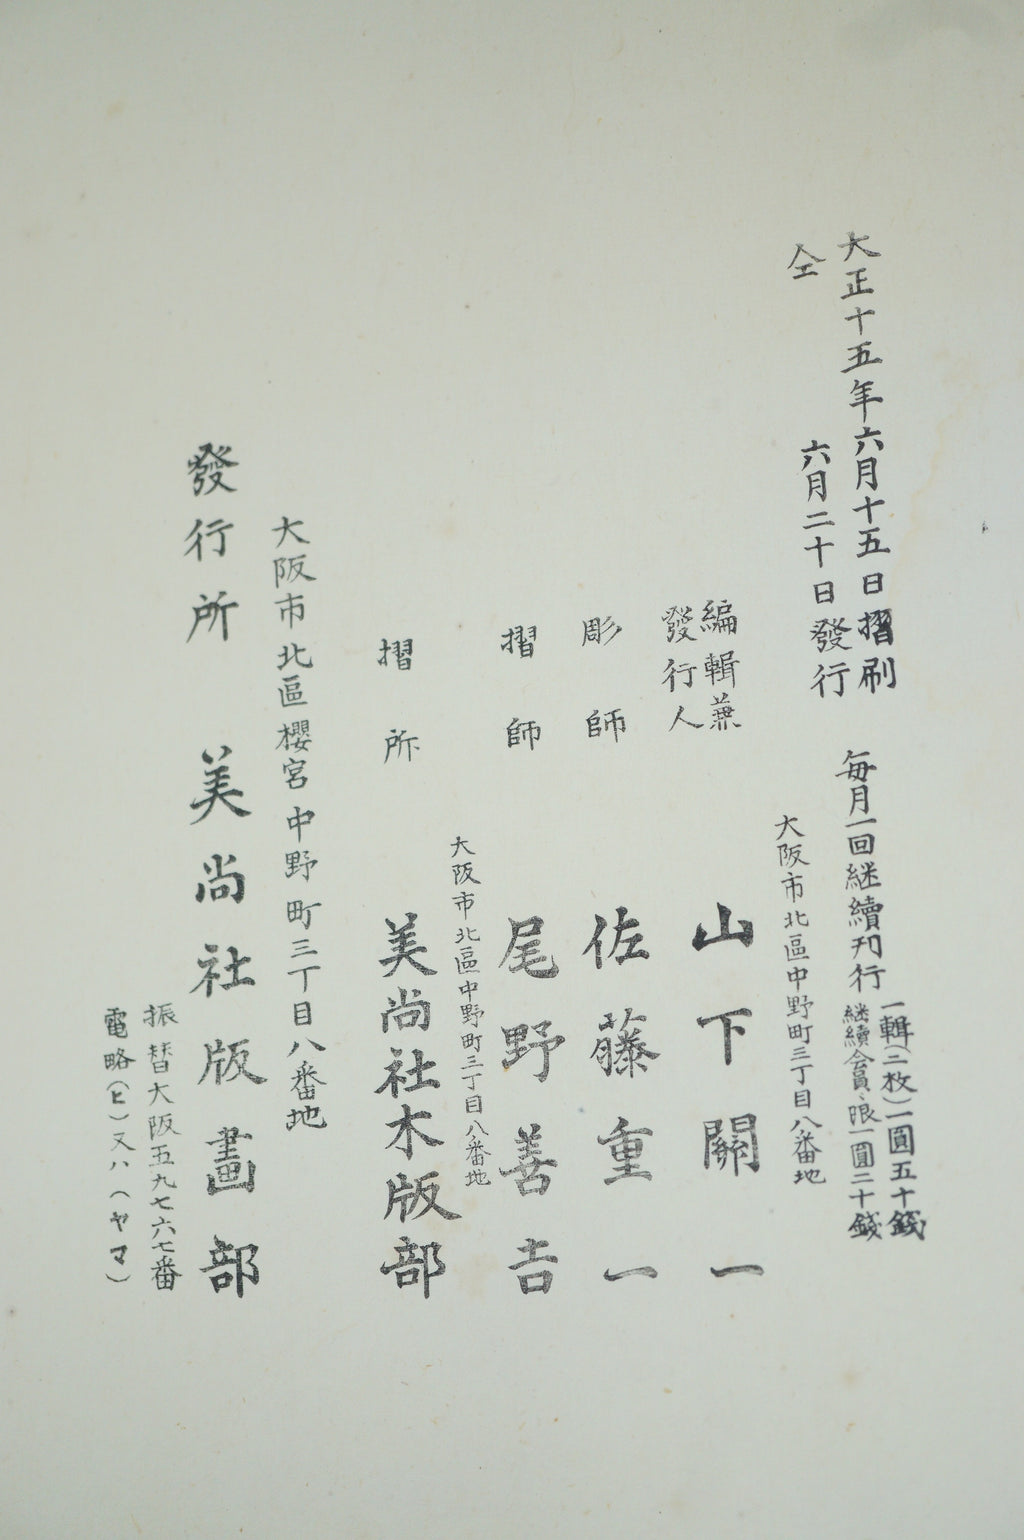 大正十五年六月十五日摺刷
仝　六月二十日發行
毎月一回継續刊行
一輯(二枚)一圓五十錢
継續会員ニ限一圓二十錢
大阪市北區中野町三丁目八番地
編輯兼
發行人
山下關一
彫師　佐藤重一
摺師　尾野善吉
大阪市北區中野町三丁目八番地
摺所　美尚社木版部
大阪市北區櫻宮中野町三丁目八番地
發行所　美尚社版畫部
振替大阪五九七六七番
電略(ヒ)又ハ(ヤマ)